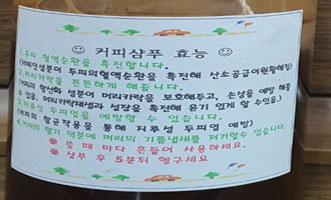 커피샴푸 효능
1. 두피 혈액순환을 촉진합니다.
(카페인성분이 두피의혈액순환을 촉진해 산소공급이원활해짐)
2. 머리카락을 튼튼하게 해줍니다.
(커피의 항산화 성분이 머리카락을 보호해주고, 손상을 예방 해줄
수 있음. 머리카락재생과 성장을 촉진해 윤기 있게 할 수있음.)
3. 지루성 두피염을 예방할 수 있습니다.
(커피의 항균작용을 통해 지루성 두피염 예방)
4. 커피의 향기 덕분에 머리의 기름냄새를 제거할수 있습니다.
쓸 때 마다 흔들어 사용하세요.
샴푸 후 5분뒤 헹구세요